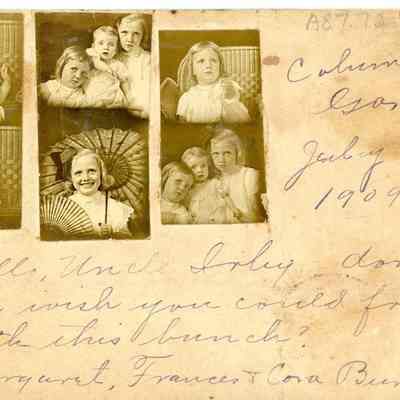 A87.72
Colum
Geo
July
1909
llo, Uncle Irby, don
wish you could f
this bunch?
rgaret, Frances & Cora Bu